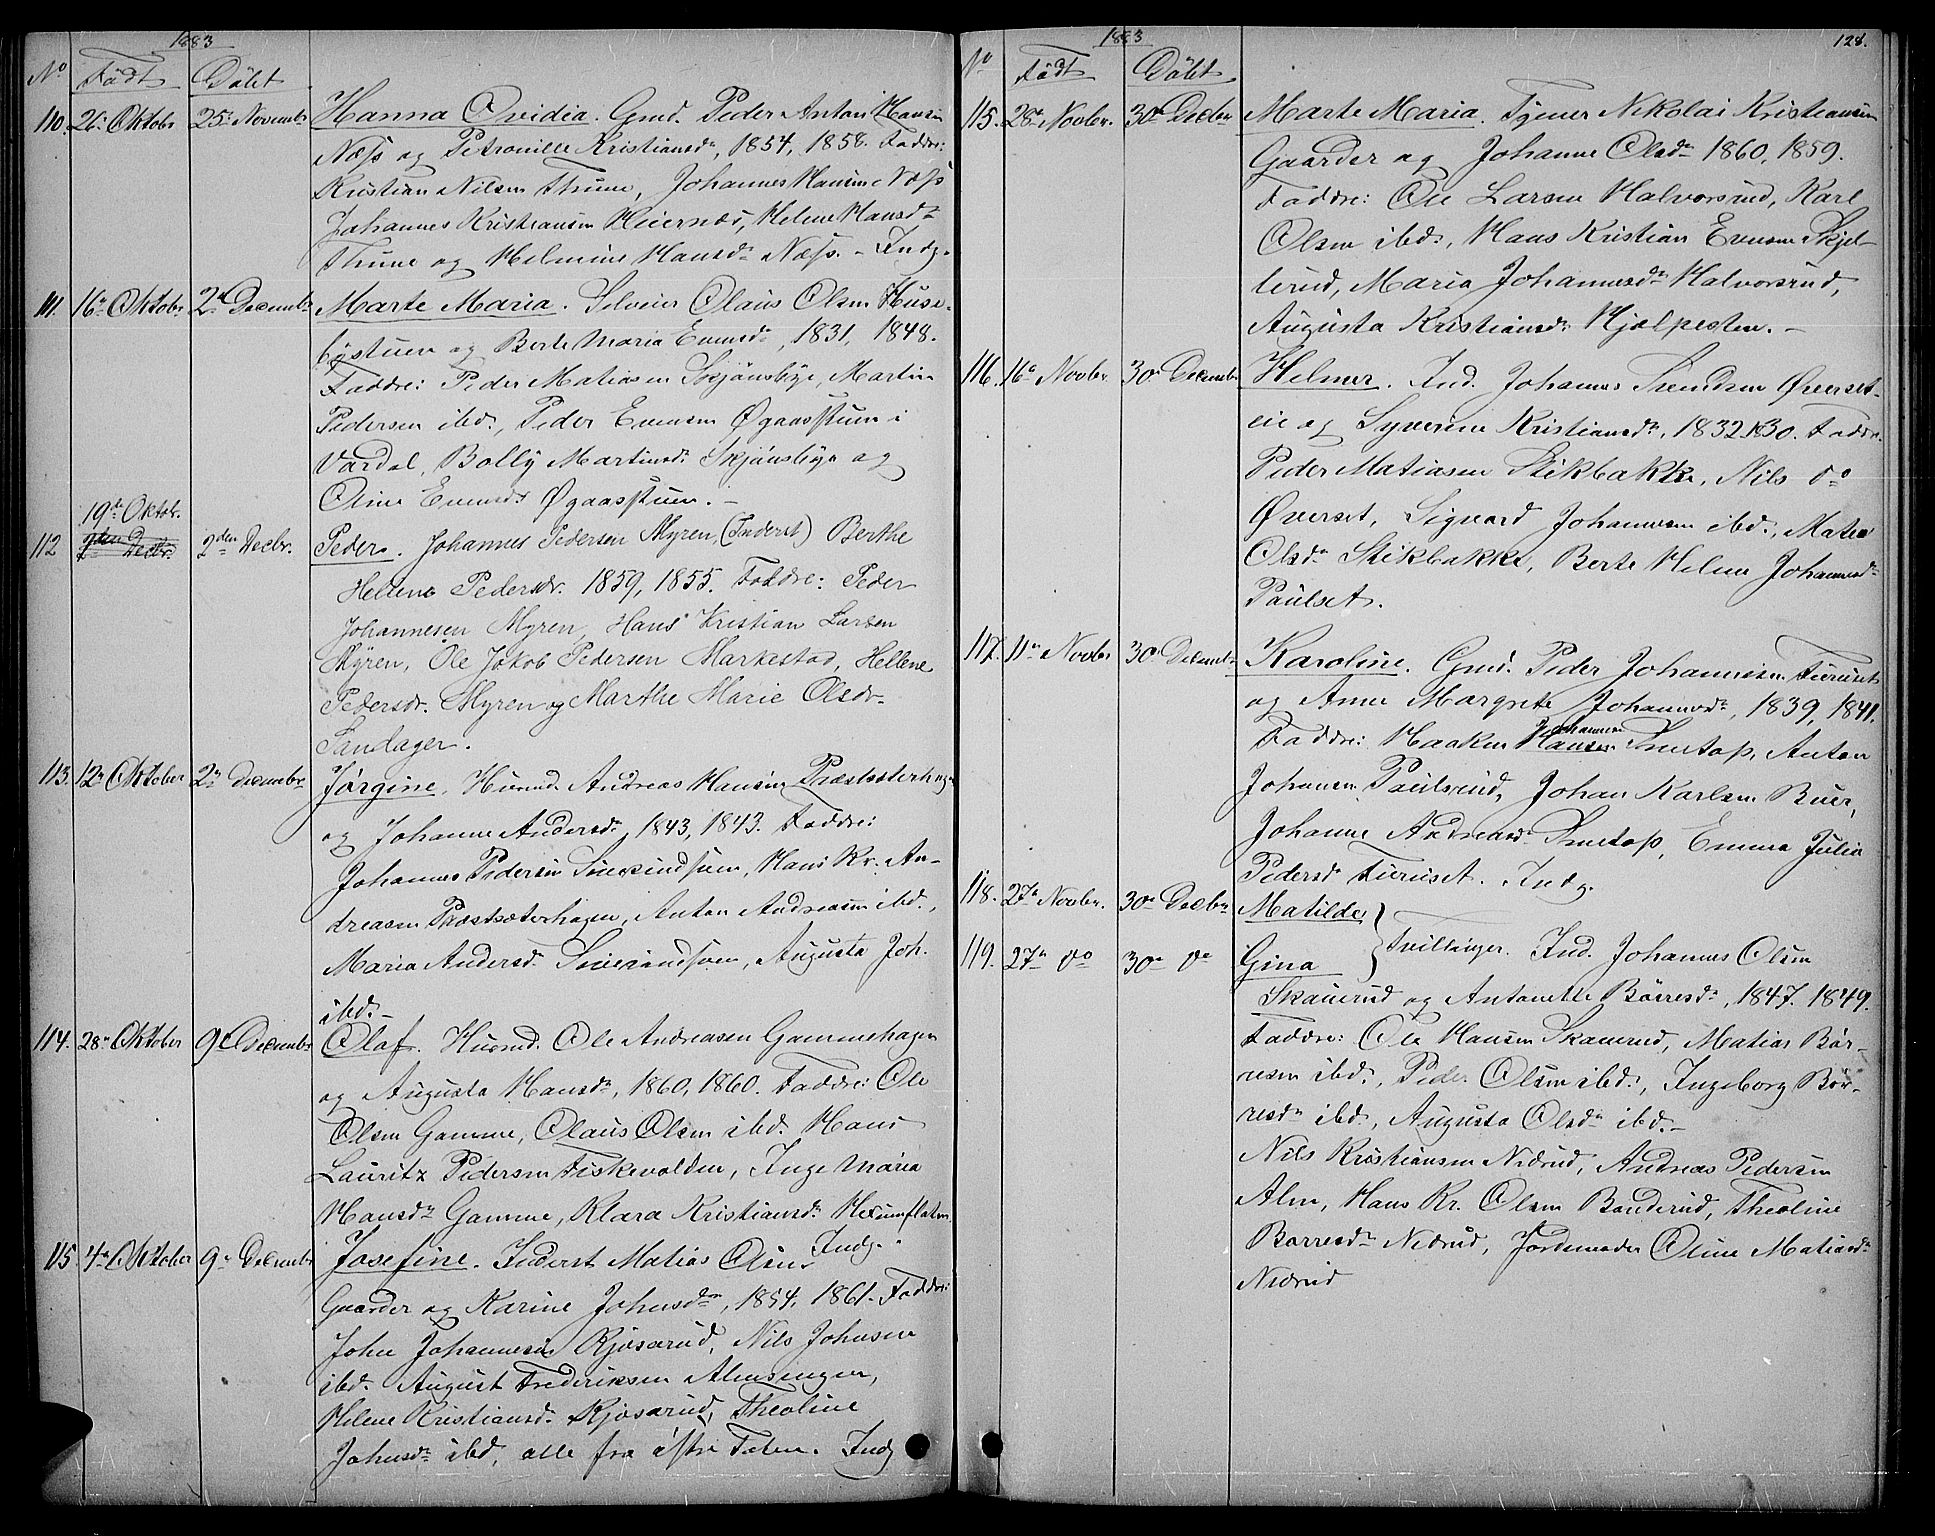 1883
No Födt Döbt
110. 26. Oktobr 25. Novembr Hanna Ovidia. Gmd. Peder Anton Hansen
Næss og Petronille Kristiansdr, 1854, 1858. Faddre:
Kristian Nilsen Thune, Johannes Hansen Næss
Johannes Kristiansen Heiernæs, Helene Hansdr
Thune og Helmine Hansdr Næss. - Indg.
111. 16. Oktobr 2. Decembr Marte Maria. Selveier Olaus Olsen Huse-
bystuen og Berte Maria Evensdr, 1831, 1848.
Faddre: Peder Matiasen Skjönsbye, Martin
Pedersen ibd., Peder Evensen Øgaardstuen i
Vardal, Bolly Martinsdr Skjönsbye og
Oline Evensdr Øgaardstuen. -
19de Oktob.
112 2den Decbr. 2den Decbr. Peder. Johannes Pedersen Myren, (Inderst) Berthe
Hellene Pedersdr. 1859, 1855. Faddre: Peder
Johannesen Myren, Hans Kristian Larsen
Myren, Ole Jakob Pedersen Markestad, Hellene
Pedersdr. Myren og Marthe Marie Olsdr.
Sandager.
113. 12. Oktober 2. Decembr Jørgine. Husmd. Andreas Hansen Præstsæterhagen
og Johanne Andersdr, 1843, 1843. Faddre:
Johannes Pedersen Hans Kr. An-
dreasen Præstsæterhagen, Anton Andreasen ibd.,
Maria Andersdr Augusta Joh.
ibd. -
114. 28. Oktober 9. Decembr Olaf. Husmd. Ole Andreasen Gammehagen
og Augusta Hansdr, 1860, 1860. Faddre: Ole
Olsen Gamme, Olaus Olsen ibd. Hans
Lauritz Pedersen Fiskevolden, Inge Maria
Hansdr Gamme, Klara Kristiansdr Hexumflaten
Indg.
115. 4. Oktober 9. Decembr Josefine. Inderst Matias Olsen
Gaarder og Karine Johnsdr, 1854, 1861. Faddre:
John Johannesen Kjösarud, Nils Johnsen
ibd. August Frederiksen Almsengen,
Helene Kristiansdr Kjösarud, Theoline
Johnsdr ibd, alle fra östre Toten. Indg
1883 128.
No Födt Döbt
115. 28. Novbr. 30. Decbr Marte Maria. Tjener Nikolai Kristiansen
Gaarder og Johanne Olsdr 1860, 1859.
Faddre: Ole Larsen Halvorsrud, Karl
Olsen ibd., Hans Kristian Evensen Skjel-
lerud, Maria Johannesdr Halvorsrud,
Augusta Kristiansdr Hjælpesten. -
116. 16. Novbr. 30. Decembr Helmer. Ind. Johannes Svendsen Øverset-
eie og Syverine Kristiansdr, 1832, 1830. Faddre.
Peder Matiasen Stikbakke, Nils do
Øverset, Sigvard Johannesen ibd., Matea
Olsdr Stikbakke, Berte Helene Johannesdr
Paulset.
117. 11. Novbr 30. Decembr Karoline. Gmd. Peder Johannesen Furuset
og Anne Margrete Johannesdr, 1839, 1841.
Johannesen
Faddre: Haaken Hansen Smetop, Anton
Johansen Paulsrud, Johan Karlsen Buer,
Johanne Andreasdr Smetop, Emma Julia
Pedersdr Furuset. Indg.
118. 27. Novbr. 30. Decbr Matilde } Tvillinger. Ind. Johannes Olsen
119. 27. do 30. do Gina
Skanerud og Antonette Börresdr, 1847. 1849.
Faddre: Ole Hansen Skanerud, Matias Bör-
resen ibd., Peder Olsen ibd., Ingeborg Bör-
resdr ibd, Augusta Olsdr ibd. -
Nils Kristiansen Nedrud, Andreas Pedersen
Alm, Hans Kr. Olsen Banderud, Theoline
Börresdr Nedrud, Jordemoder Oline Matiasdr
Nedrud